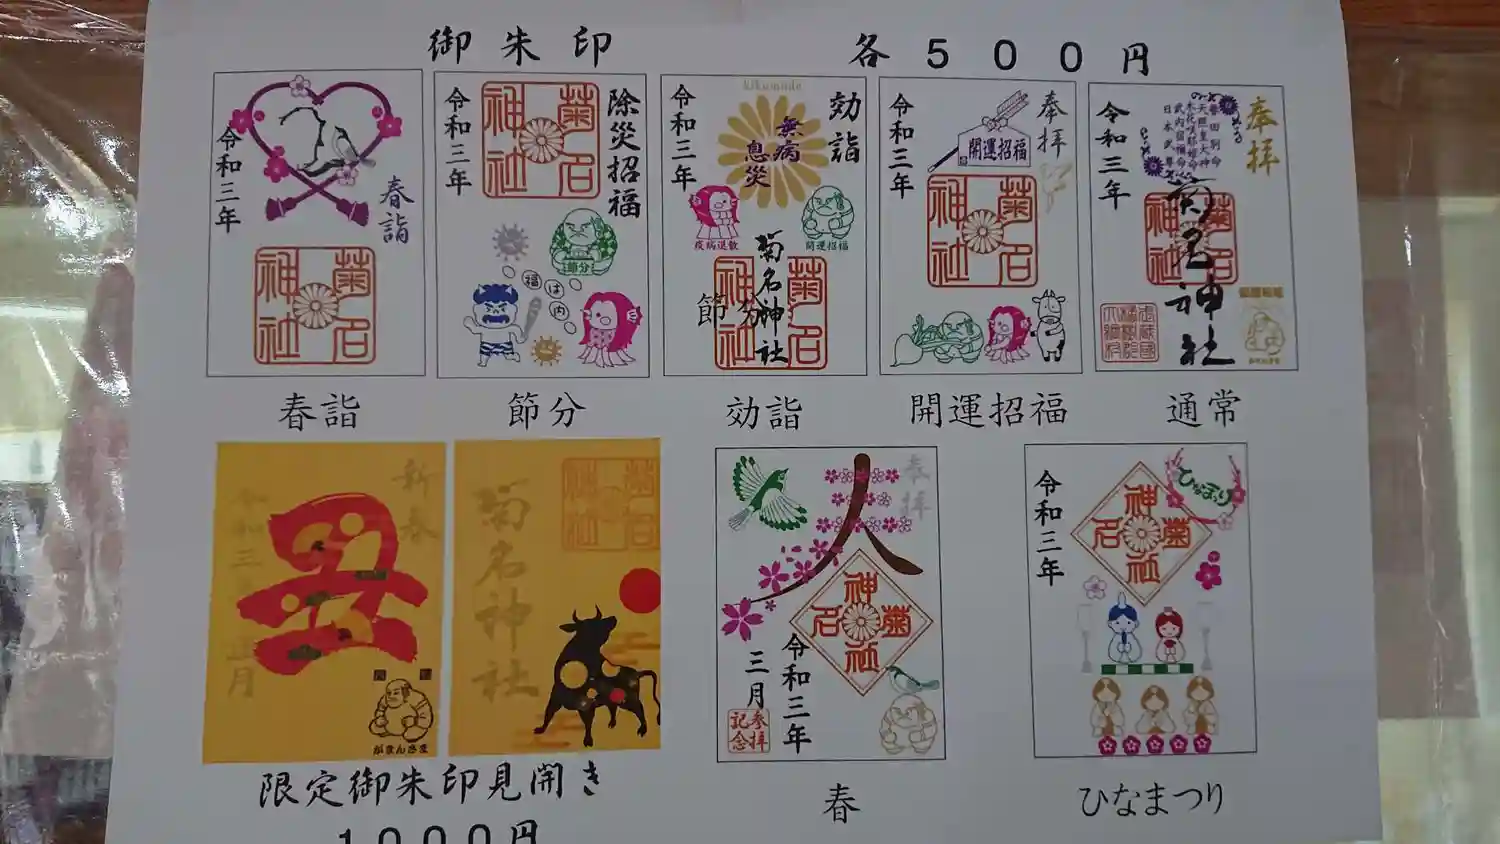 御朱印
各５００円
令和三年
春詣
菊名神社
春詣
令和三年
除災招福
菊名神社
節分
福は内
節分
kikumode
令和三年
効詣
無病息災
疫病退散
開運招福
菊名神社
菊名神社
節分
効詣
令和三年
奉拝
開運招福
菊名神社
開運招福
令和三年
奉拝
誉田別命
天照皇大神
木花咲耶姫命
武内宿禰命
日本武尊
菊名神社
菊名神社
通常
新春
令和三年正月
丑
がまんさま
菊名神社
菊名神社
限定御朱印見開き
１０００円
奉拝
人
菊名神社
令和三年
三月
参拝記念
春
令和三年
ひなまつり
菊名神社
ひなまつり